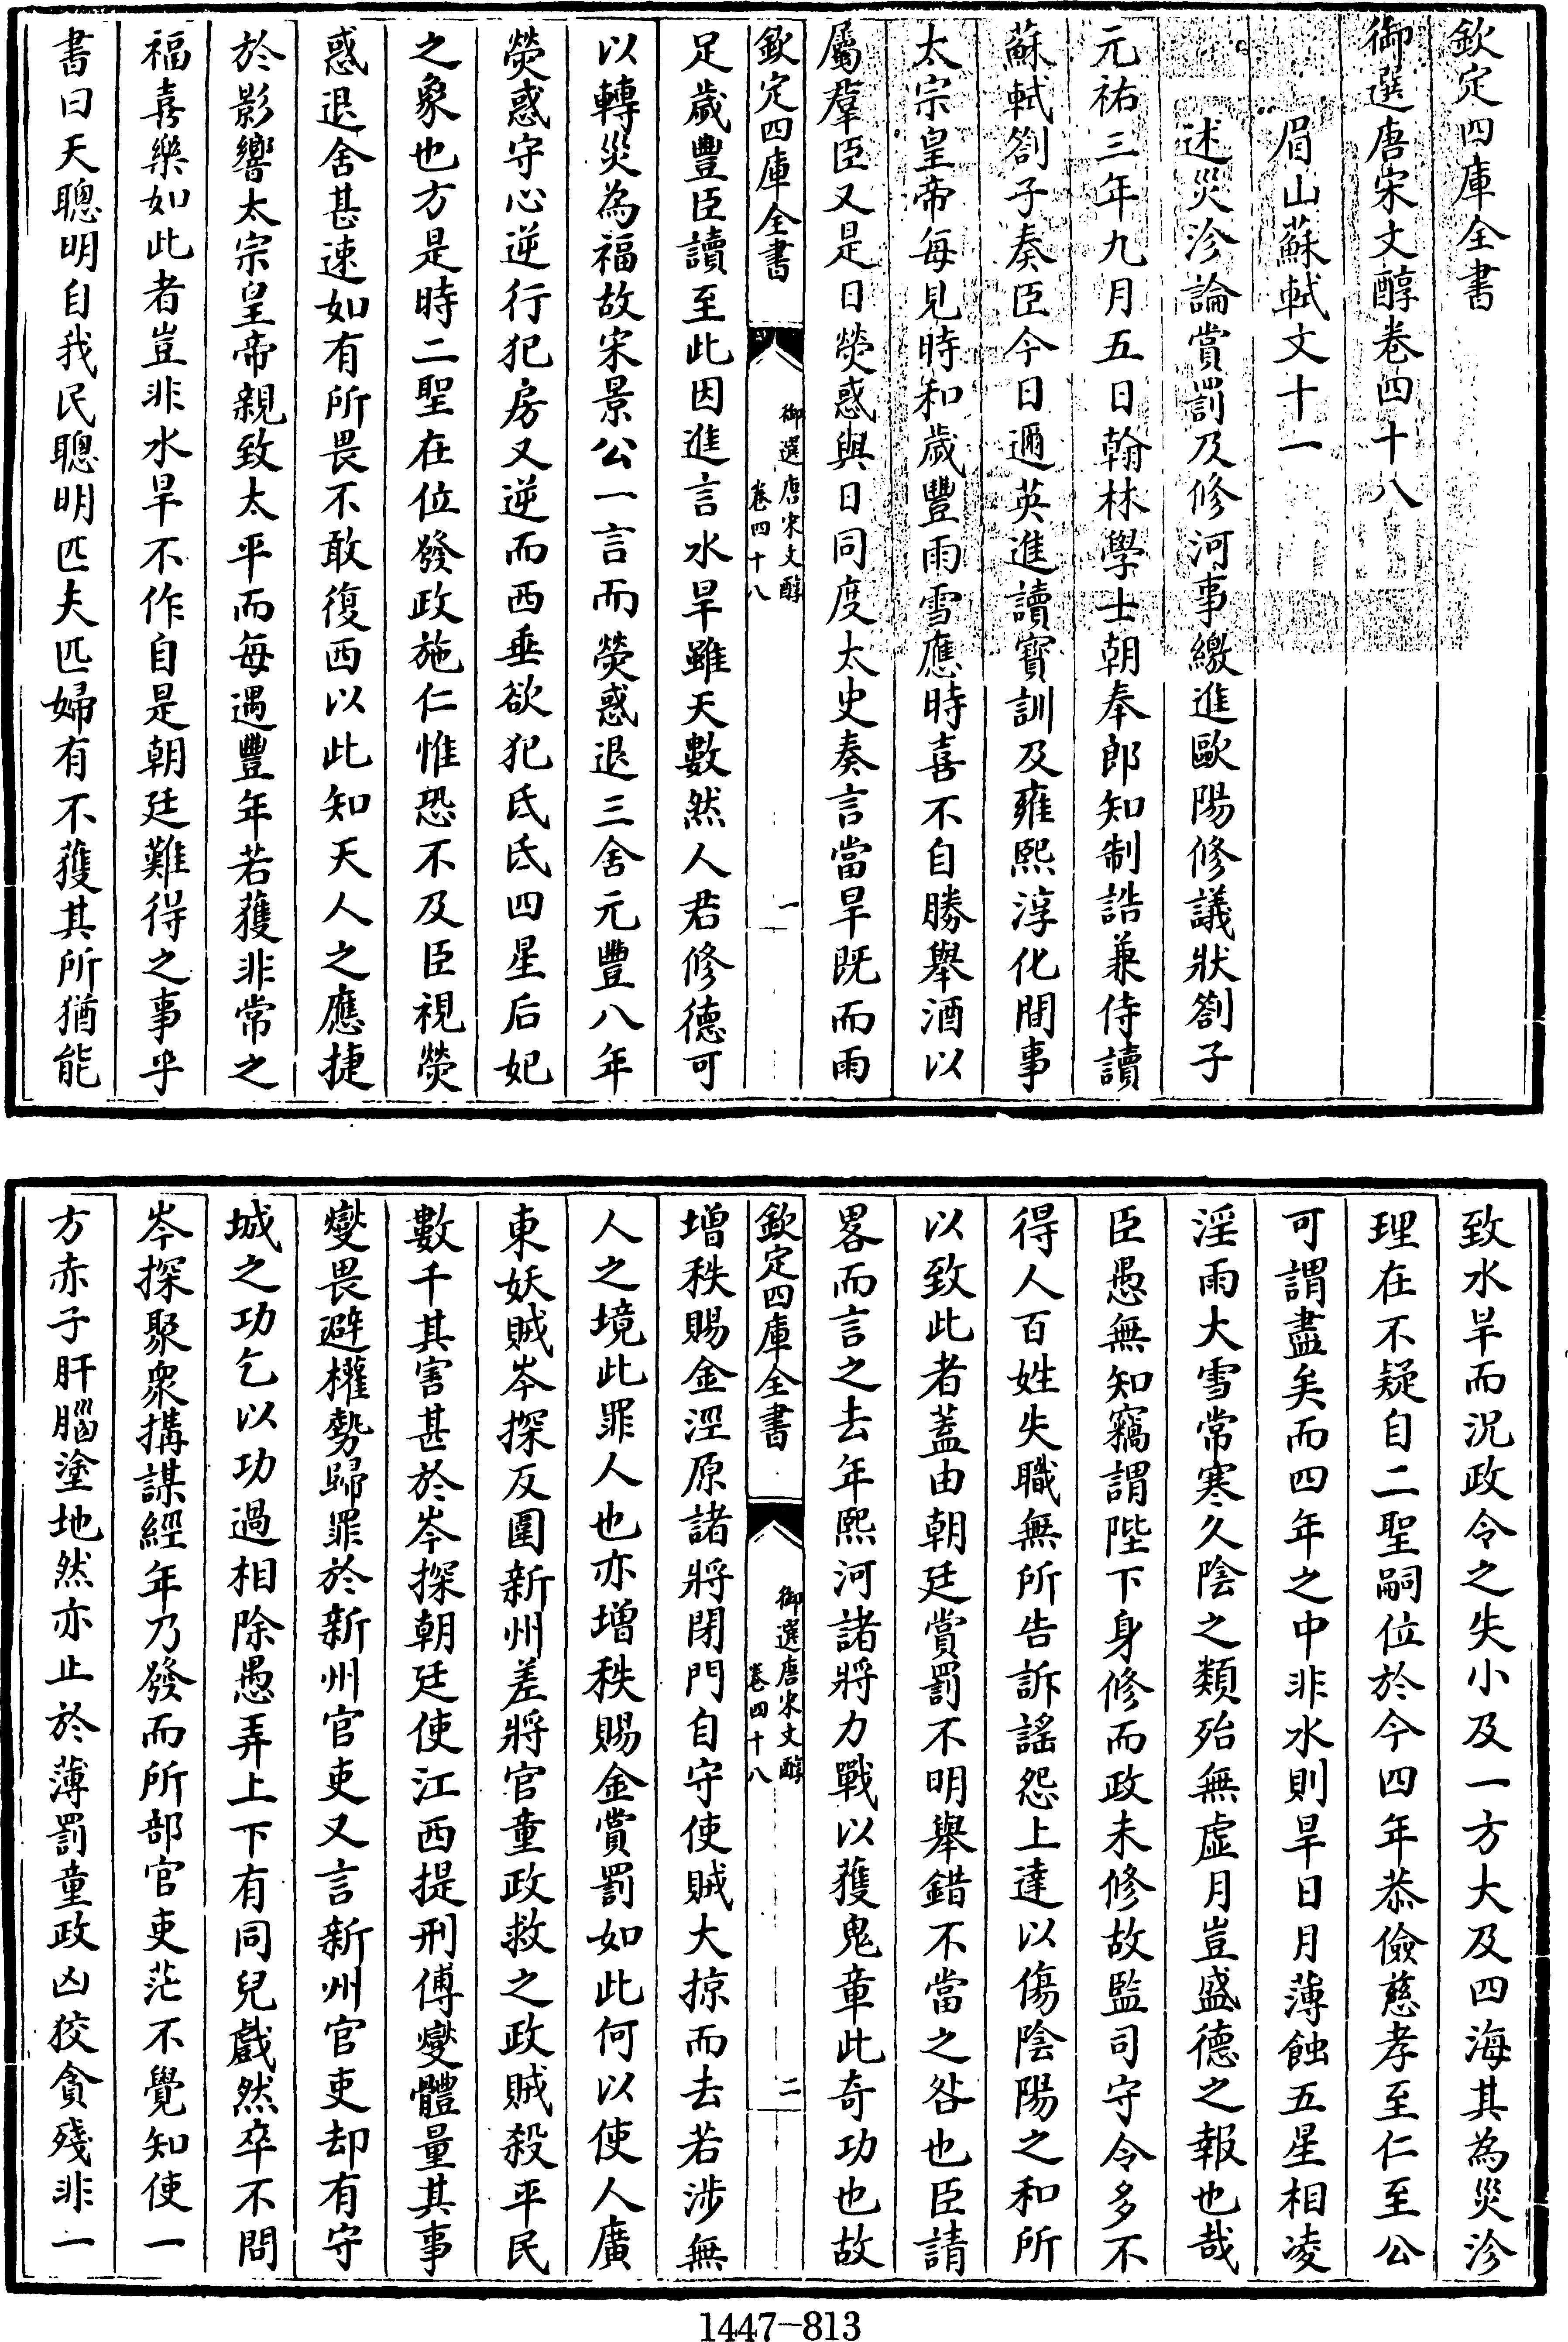 欽定四庫全書
御選唐宋文醇卷四十八
眉山蘇軾文十一
述災沴論賞罰及修河事繳進歐陽修議狀劄子
元祐三年九月五日翰林學士朝奉郎知制誥兼侍讀
蘇軾劄子奏臣今日邇英進讀寶訓及雍熙淳化間事
太宗皇帝每見時和歲豐雨雪應時喜不自勝舉酒以
屬羣臣又是日熒惑與日同度太史奏言當旱既而雨
欽定四庫全書
御選唐宋文醇
卷四十八
一
足歲豐臣讀至此因進言水旱雖天數然人君修德可
以轉災為福故宋景公一言而熒惑退三舍元豐八年
熒惑守心逆行犯房又逆而西垂欲犯氐氐四星后妃
之象也方是時二聖在位發政施仁惟恐不及臣視熒
惑退舍甚速如有所畏不敢復西以此知天人之應捷
於影響太宗皇帝親致太平而每遇豐年若獲非常之
福喜樂如此者豈非水旱不作自是朝廷難得之事乎
書曰天聰明自我民聰明匹夫匹婦有不獲其所猶能
致水旱而況政令之失小及一方大及四海其為災沴
理在不疑自二聖嗣位於今四年恭儉慈孝至仁至公
可謂盡矣而四年之中非水則旱日月薄蝕五星相凌
淫雨大雪常寒久陰之類殆無虛月豈盛德之報也哉
臣愚無知竊謂陛下身修而政未修故監司守令多不
得人百姓失職無所告訴謠怨上達以傷陰陽之和所
以致此者蓋由朝廷賞罰不明舉錯不當之咎也臣請
畧而言之去年熙河諸將力戰以獲鬼章此奇功也故
欽定四庫全書
御選唐宋文醇
卷四十八
二
增秩賜金涇原諸將閉門自守使賊大掠而去若涉無
人之境此罪人也亦增秩賜金賞罰如此何以使人廣
東妖賊岑探反圍新州差將官童政救之政賊殺平民
數千其害甚於岑探朝廷使江西提刑傅燮體量其事
燮畏避權勢歸罪於新州官吏又言新州官吏却有守
城之功乞以功過相除愚弄上下有同兒戲然卒不問
岑探聚衆搆謀經年乃發而所部官吏茫不覺知使一
方赤子肝腦塗地然亦止於薄罰童政凶狡貪殘非一
1447-813